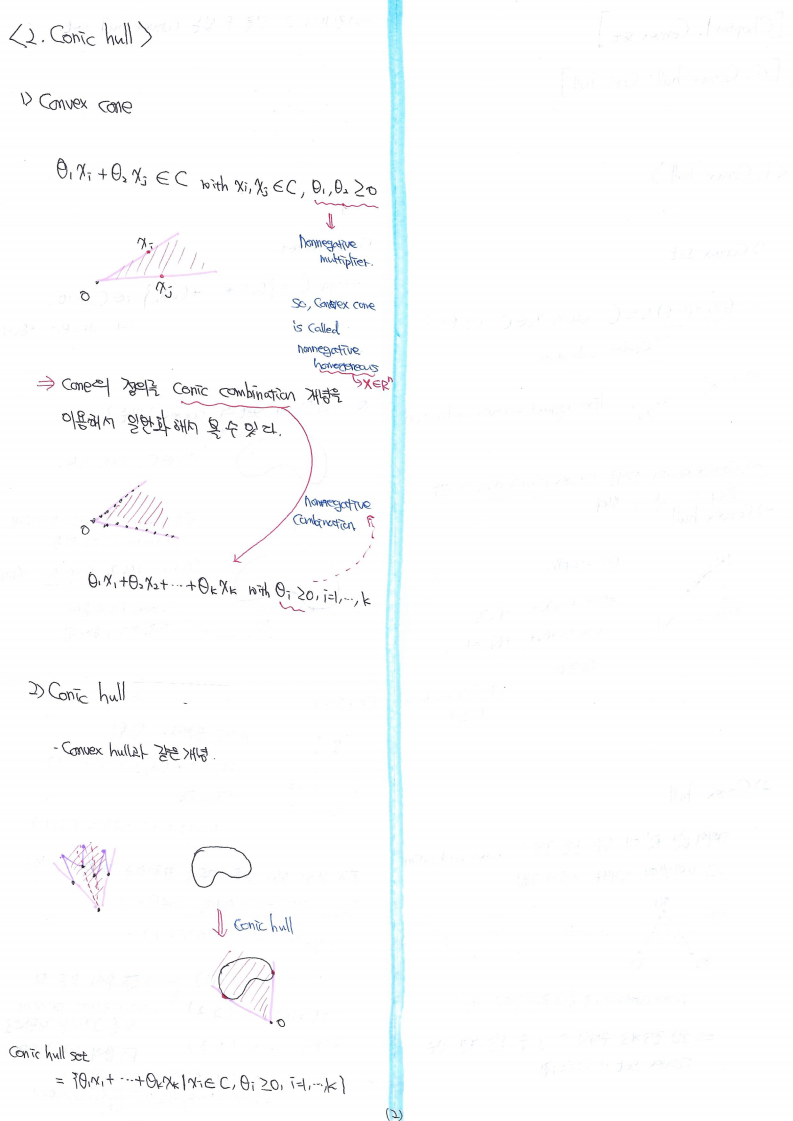 <2. Conic hull>
1) Convex cone
θ₁xᵢ + θ₂xⱼ ∈ C with xᵢ, xⱼ ∈ C, θ₁, θ₂ ≥ 0
⇓
Nonnegative
multiplier.
xᵢ
0
xⱼ
So, Convex cone
is called
nonnegative
homogeneous
↳ X∈Rⁿ
⇒ Cone의 정의를 Conic combination 개념을
이용해서 일반화 해서 볼 수 있다.
0
Nonnegative
Combination
θ₁x₁+θ₂x₂+⋯+θₖxₖ with θᵢ ≥0, i=1,⋯,k
2) Conic hull
- Convex hull과 같은 개념.
⇓ Conic hull
0
Conic hull set
= {θ₁x₁+⋯+θₖxₖ | xᵢ∈C, θᵢ ≥0, i=1,⋯,k}
(2)